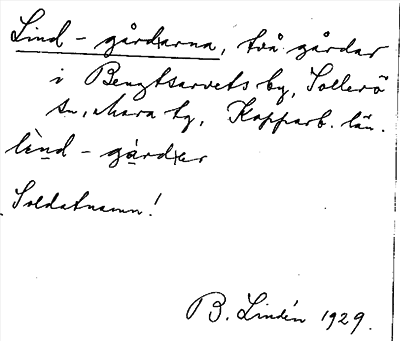 Lind-gårdarna, två gårdar
i Bengtsarvets by, Sollerö
sn, Mora tg, Kopparb. län.
lìnd-gàrdər
Soldatnamn!
B. Lindén 1929.